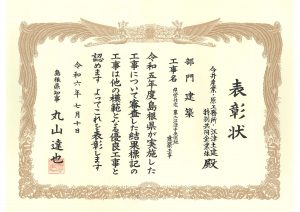 表彰状
今井産業・原工務所・江津土建
特別共同企業体 殿
部門 建築
工事名
建築工事
令和五年度島根県が実施した
工事について審査した結果標記の
工事は他の模範となる優良工事と
認めます よってこれを表彰します
令和六年七月十日
島根県知事 丸山達也